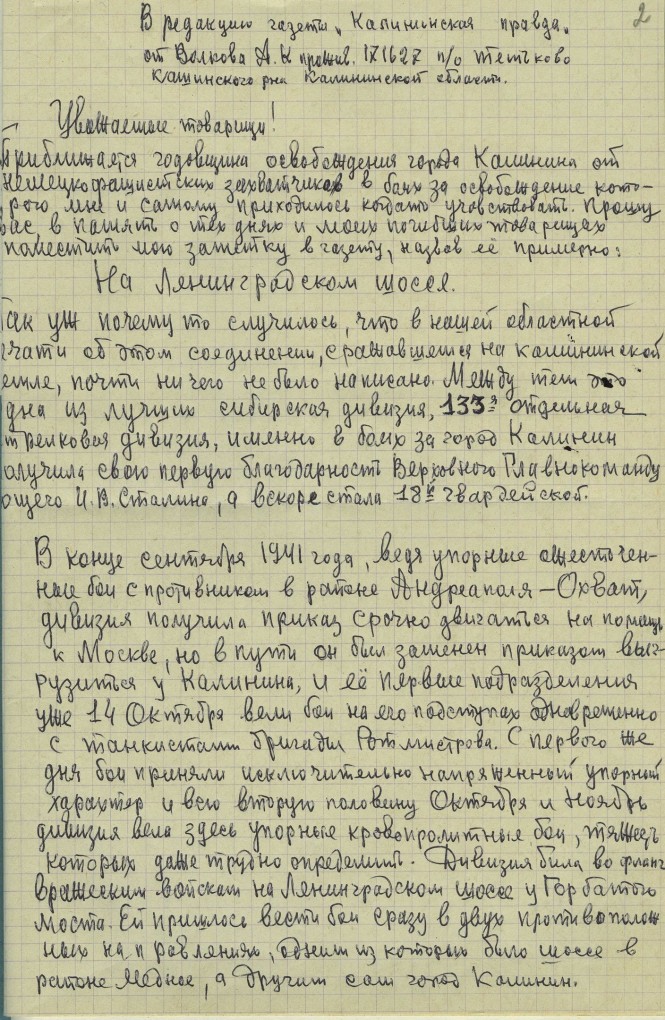 2
В редакцию газеты „Калининская правда„
от Волкова А.К прожив. 171627 п/о Тетьково
Кашинского рна Калининской области.
Уважаемые товарищи!
Приближается годовщина освобождения города Калинина от
немецкофашистских захватчиков в боях за освобождение кото-
рого мне и самому приходилось когдато учавствовать. Прошу
вас, в память о тех днях и моих погибших товарищах
поместить мою заметку в газету, назвав её примерно:
На Ленинградском шоссе.
Так уж почему то случилось, что в нашей областной
ечати об этом соединении, сражавшемся на калининской
емле, почти ничего не было написано. Между тем это
дна из лучших сибирская дивизия, 133я отдельная
трелковая дивизия, именно в боях за город Калинин
олучила свою первую благодарность Верховного Главнокоманду
ющего И.В.Сталина, а вскоре стала 18й гвардейской.
В конце сентября 1941 года, ведя упорные ожесточен-
ные бои с противником в районе Андреаполя – Охват,
дивизия получила приказ срочно двигаться на помощь
к Москве, но в пути он был заменен приказом выг-
рузится у Калинина, и её первые подразделения
уже 14 Октября вели бои на его подступах одновременно
с танкистами бригады Ротмистрова. С первого же
дня бои приняли исключительно напряженный упорный
характер и всю вторую половину Октября и Ноябрь
дивизия вела здесь упорные кровопролитные бои, тяжесть
которых даже трудно определить. Дивизия была во фланг
вражеским войскам на Ленинградском шоссе у Горбатого
моста. Ей пришлось вести бои сразу в двух противополож
ных направлениях, одним из которых было шоссе в
районе Медное, а другим сам город Калинин.